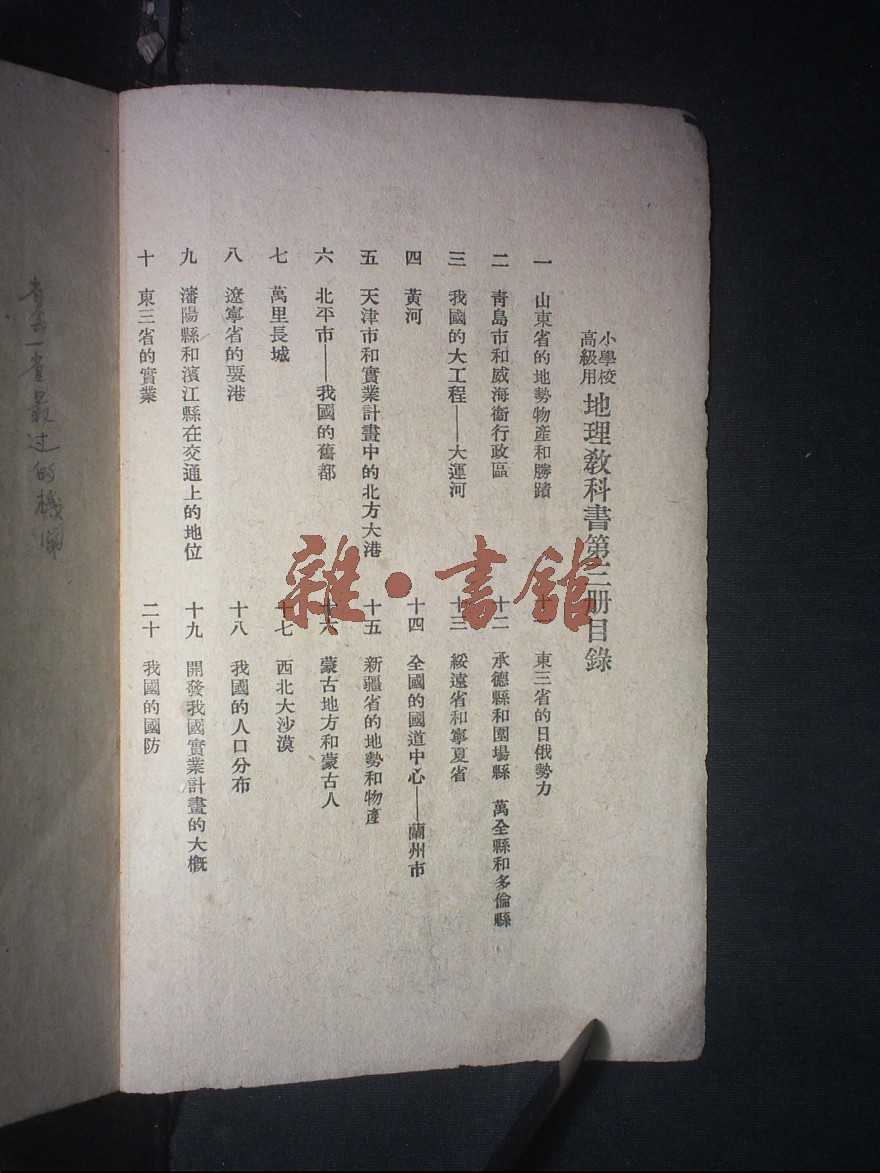 小學校
高級用
地理敎科書第三册目錄
一 山東省的地勢物產和勝蹟
二 青島市和威海衞行政區
三 我國的大工程——大運河
四 黃河
五 天津市和實業計畫中的北方大港
六 北平市——我國的舊都
七 萬里長城
八 遼寧省的要港
九 瀋陽縣和濱江縣在交通上的地位
十 東三省的實業
十一 東三省的日俄勢力
十二 承德縣和圍場縣 萬全縣和多倫縣
十三 綏遠省和寧夏省
十四 全國的國道中心——蘭州市
十五 新疆省的地勢和物產
十六 蒙古地方和蒙古人
十七 西北大沙漠
十八 我國的人口分布
十九 開發我國實業計畫的大概
二十 我國的國防
雜·書館